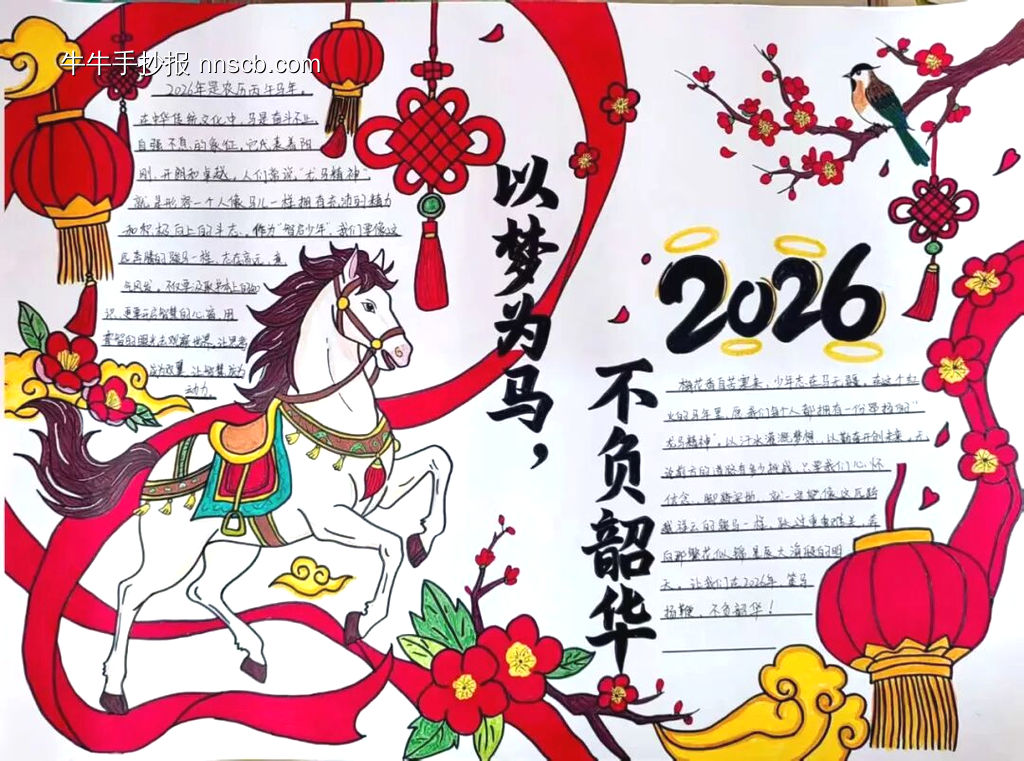 牛牛手抄报 nnscb.com
2026年是农历丙午马年。
在中华传统文化中,马是奋斗不止、
自强不息的象征,它代表着阳
刚、开朗和卓越。人们常说,"龙马精神"
就是形容一个人像马儿一样拥有充沛的精力
和积极向上的斗志。作为"智启少年",我们要像这
匹奔腾的骏马一样,志存高远,意
气风发,不仅要汲取书本上的知
识,更要开启智慧的心窗,用
睿智的眼光去观察世界,让思考
成为双翼,让智慧成为
动力。
以梦为马,
不负韶华
2026
梅花香自苦寒来,少年志在马无疆。在这个红
火的马年里,愿我们每个人都拥有一份昂扬的"
龙马精神"。以汗水浇灌梦想,以勤奋开创未来,无
论前方的道路有多少挑战,只要我们心怀
信念、脚踏实地,就一定能像这匹跨
越祥云的骏马一样,跃过重重难关,奔
向那繁花似锦、星辰大海般的明
天。让我们在2026年,策马
扬鞭,不负韶华!